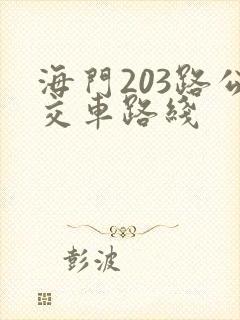 海門203路公
交車路綫
彭波